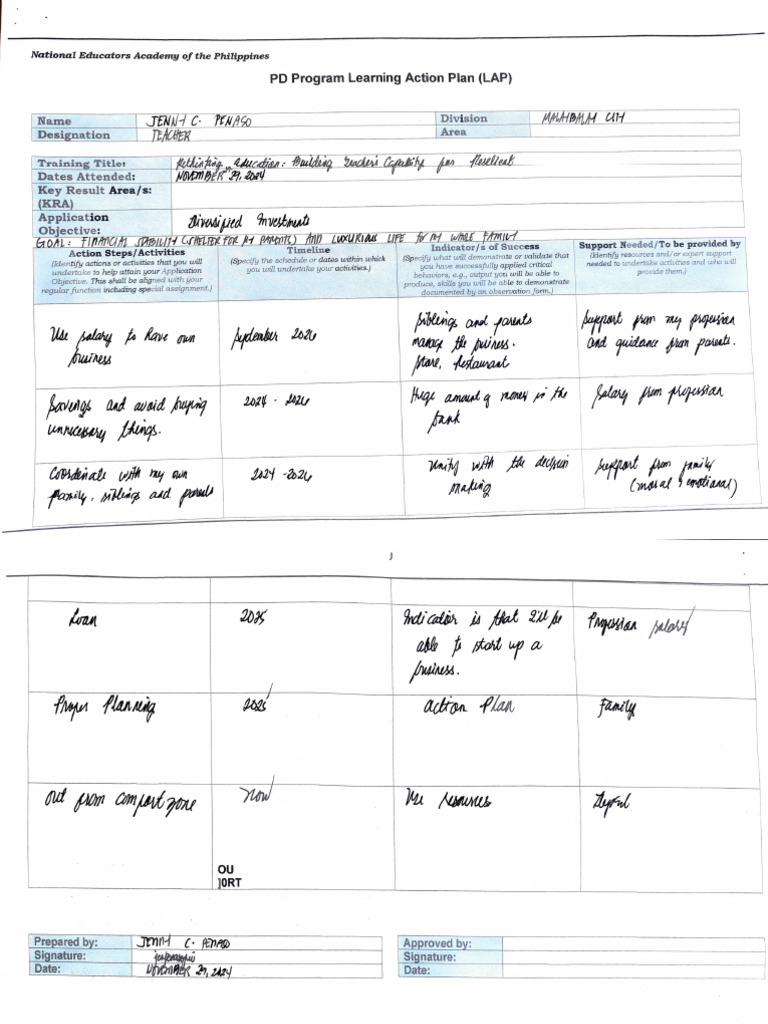 National Educators Academy of the Philippines
PD Program Learning Action Plan (LAP)
Name JENNY C. PENASO Division MALAYBALAY CITY
Designation TEACHER Area
Training Title: Rethinking Education: Building Teacher's Capability for
Dates Attended: NOVEMBER 29, 2024
Key Result Area/s:
(KRA)
Application
Objective: Diversified Investments
GOAL: FINANCIAL STABILITY (SHELTER FOR MY PARENTS) AND LUXURIOUS LIFE TO MY WHOLE FAMILY
Action Steps/Activities
(Identify actions or activities that you will
undertake to help attain your Application
Objective. This shall be aligned with your
regular function including special assignment.)
Timeline
(Specify the schedule or dates within which
you will undertake your activities.)
Indicator/s of Success
(Specify what will demonstrate or validate that
you have successfully applied critical
behaviors, e.g., output you will be able to
produce, skills you will be able to demonstrate
documented by an observation form.)
Support Needed/To be provided by
(Identify resources and/or expert support
needed to undertake activities and who will
provide them.)
Use salary to have own
business
September 2026
Siblings and parents
manage the business.
Store, Restaurant
Support from my profession
and guidance from parents.
Savings and avoid buying
unnecessary things.
2024 - 2026
Huge amount of money in the
bank
Salary from profession
Coordinate with my own
family, siblings and parents
2024 - 2026
Unity with the decision
making
Support from family
(moral & emotional)
Loan
2025
Indicator is that I'll be
able to start up a
business.
Profession salary
Proper Planning
2025
Action Plan
Family
Out from comfort zone
now
Use resources
OU
ORT
Prepared by: JENNY C. PENASO
Signature:
Date: NOVEMBER 29, 2024
Approved by:
Signature:
Date: